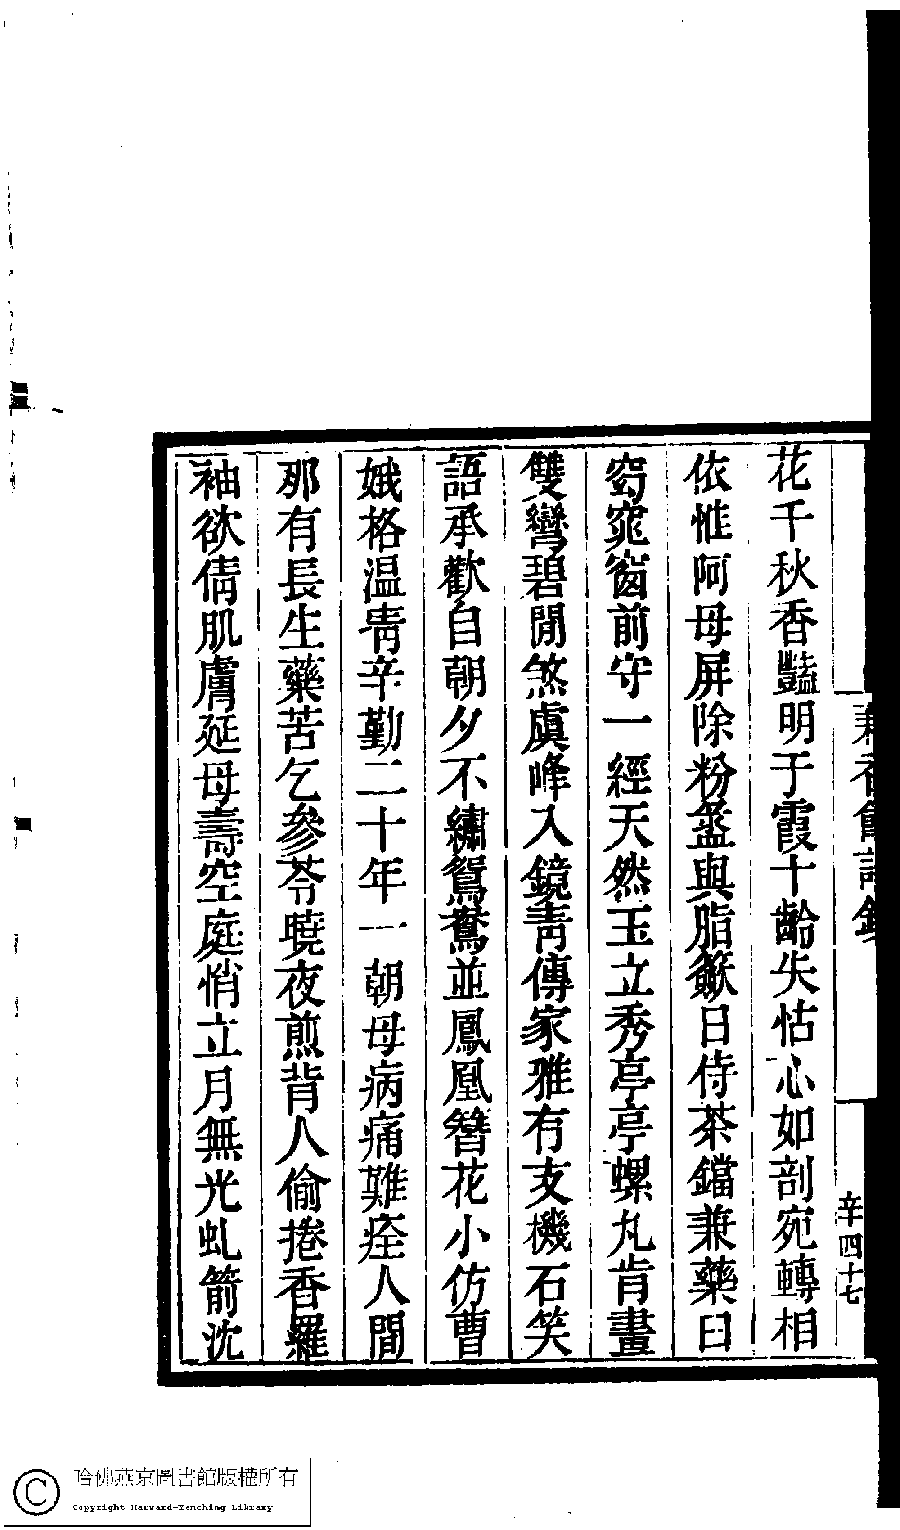 花千秋香豔明于霞十齡失怙心如剖宛轉相
依惟阿母屏除粉盝與脂籨日侍茶鐺兼藥臼
窈窕窗前守一經天然玉立秀亭亭螺丸肯畫
雙彎碧閒煞虞峰入鏡青傳家雅有支機石笑
語承歡自朝夕不繡鴛鴦並鳳凰簪花小仿曹
娥格溫凊辛勤二十年一朝母病痛難痊人間
那有長生藥苦乞參苓曉夜煎背人偷捲香羅
袖欲倩肌膚延母壽空庭悄立月無光虬箭沈
香館詩鈔
辛四十七
哈佛燕京圖書館版權所有
Copyright Harvard-Yenching Library